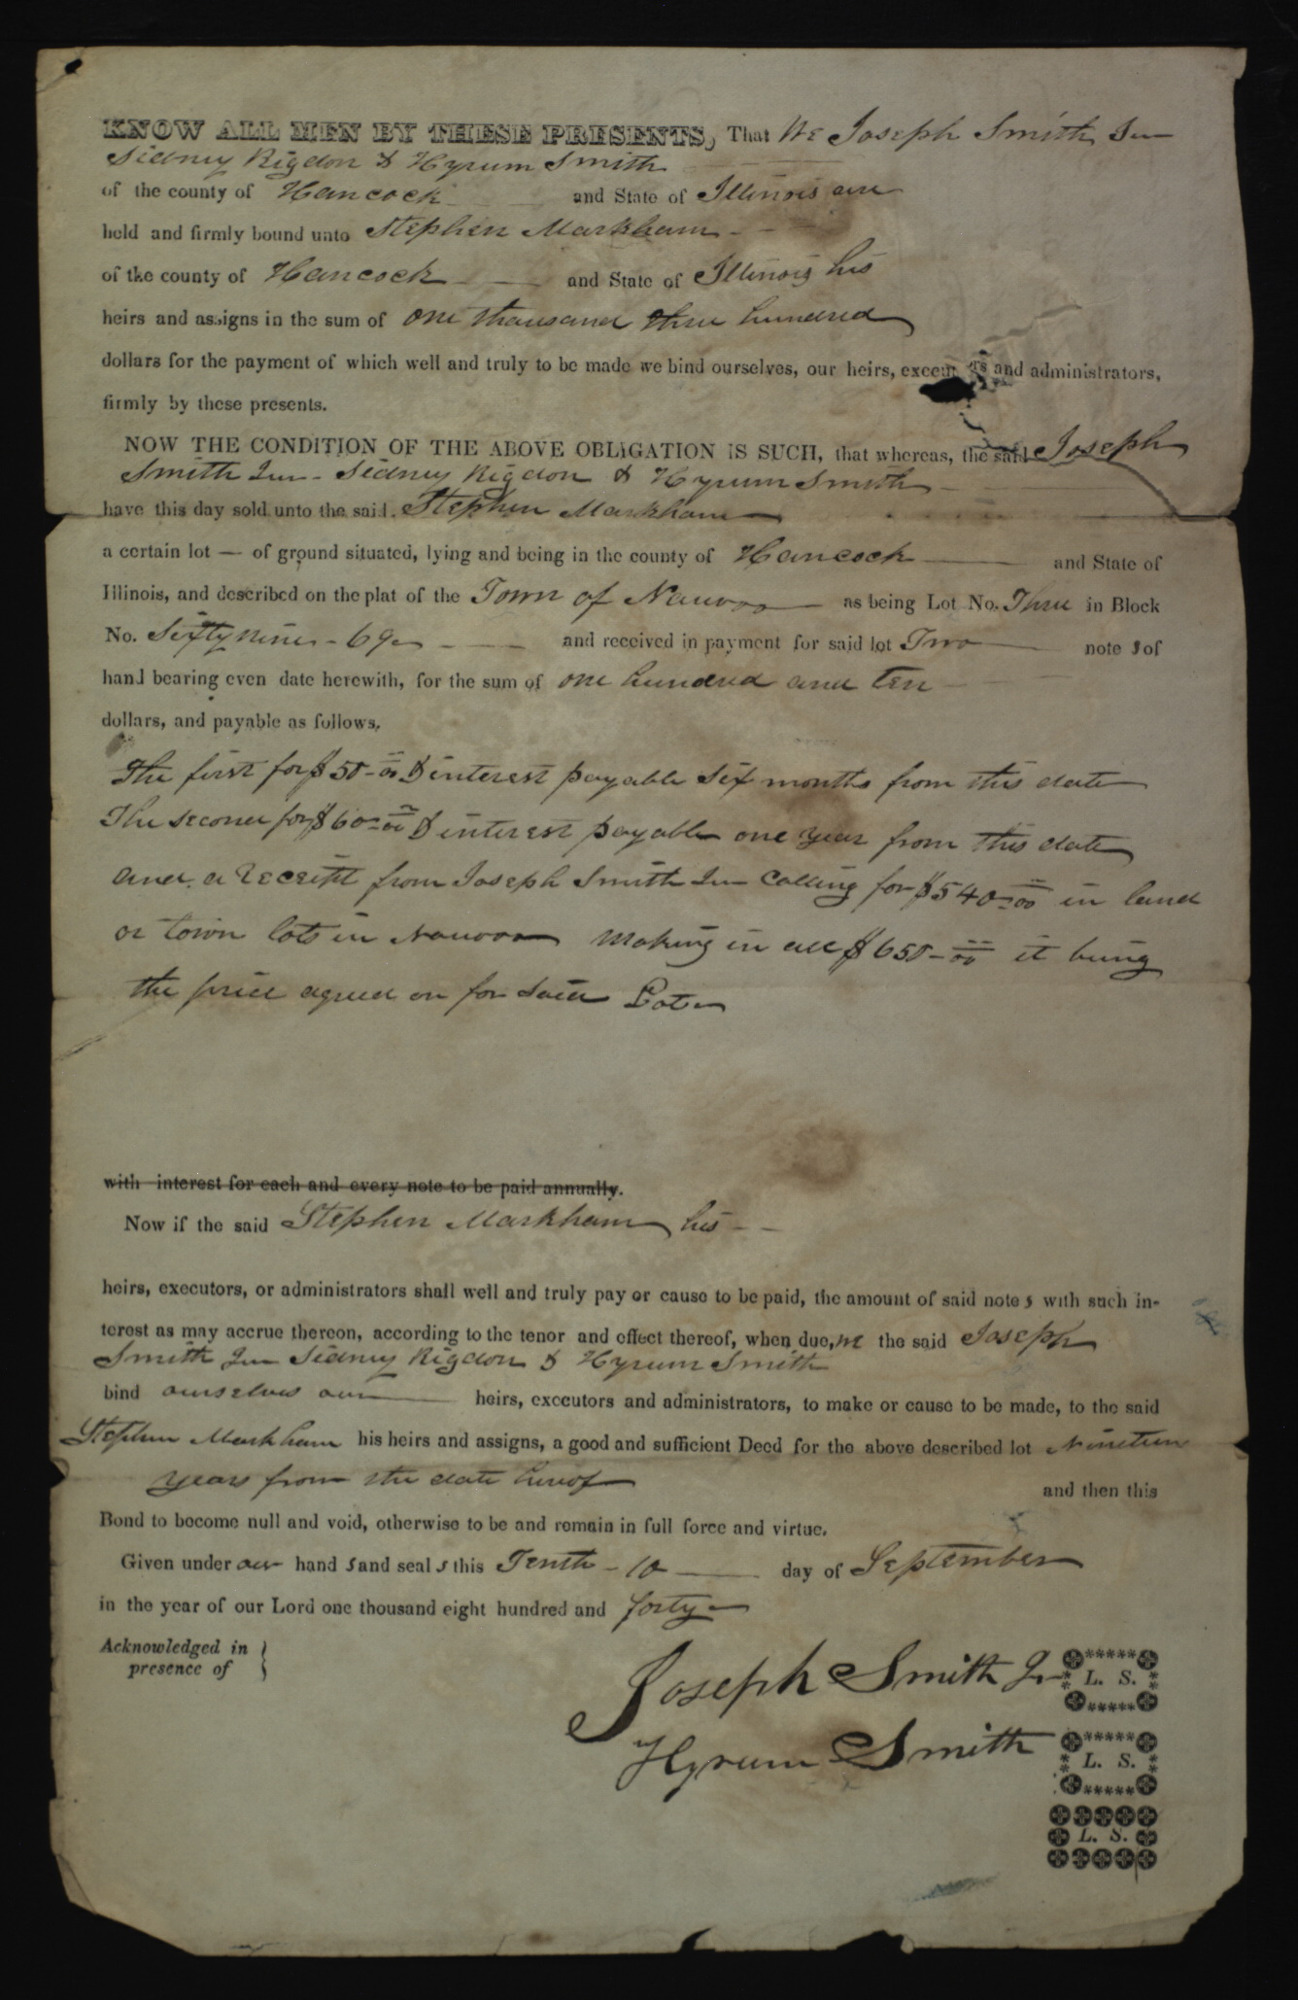 KNOW ALL MEN BY THESE PRESENTS, That We Joseph Smith Jun
Sidney Rigdon & Hyrum Smith
of the county of Hancock and State of Illinois are
held and firmly bound unto Stephen Markham
of the county of Hancock and State of Illinois his
heirs and assigns in the sum of one thousand three hundred
dollars for the payment of which well and truly to be made we bind ourselves, our heirs, and administrators,
firmly by these presents.
NOW THE CONDITION OF THE ABOVE OBLIGATION IS SUCH, that whereas, the said Joseph
Smith Jun - Sidney Rigdon & Hyrum Smith
have this day sold unto the said Stephen Markham
a certain lot — of ground situated, lying and being in the county of Hancock and State of
Illinois, and described on the plat of the Town of Nauvoo as being Lot No. Three in Block
No. Sixty nine - 69 and received in payment for said lot Two note s of
hand bearing even date herewith, for the sum of one hundred and ten
dollars, and payable as follows,
The first for $50-00 & interest payable six months from this date
The second for $60=00 & interest payable one year from this date
and a receipt from Joseph Smith Jun Calling for $540=00 in land
or town lots in Nauvoo Making in all $650-00 it being
the price agreed on for said Lot
with interest for each and every note to be paid annually.
Now if the said Stephen Markham his
heirs, executors, or administrators shall well and truly pay or cause to be paid, the amount of said note s with such in-
terest as may accrue thereon, according to the tenor and effect thereof, when due, we the said Joseph
Smith Jun Sidney Rigdon & Hyrum Smith
bind ourselves our heirs, executors and administrators, to make or cause to be made, to the said
Stephen Markham his heirs and assigns, a good and sufficient Deed for the above described lot Nineteen
years from the date hereof and then this
Bond to become null and void, otherwise to be and remain in full force and virtue.
Given under our hand s and seal s this Tenth - 10 day of September
in the year of our Lord one thousand eight hundred and forty
Acknowledged in }
presence of }
Joseph Smith Jr L. S.
Hyrum Smith L. S.
L. S.